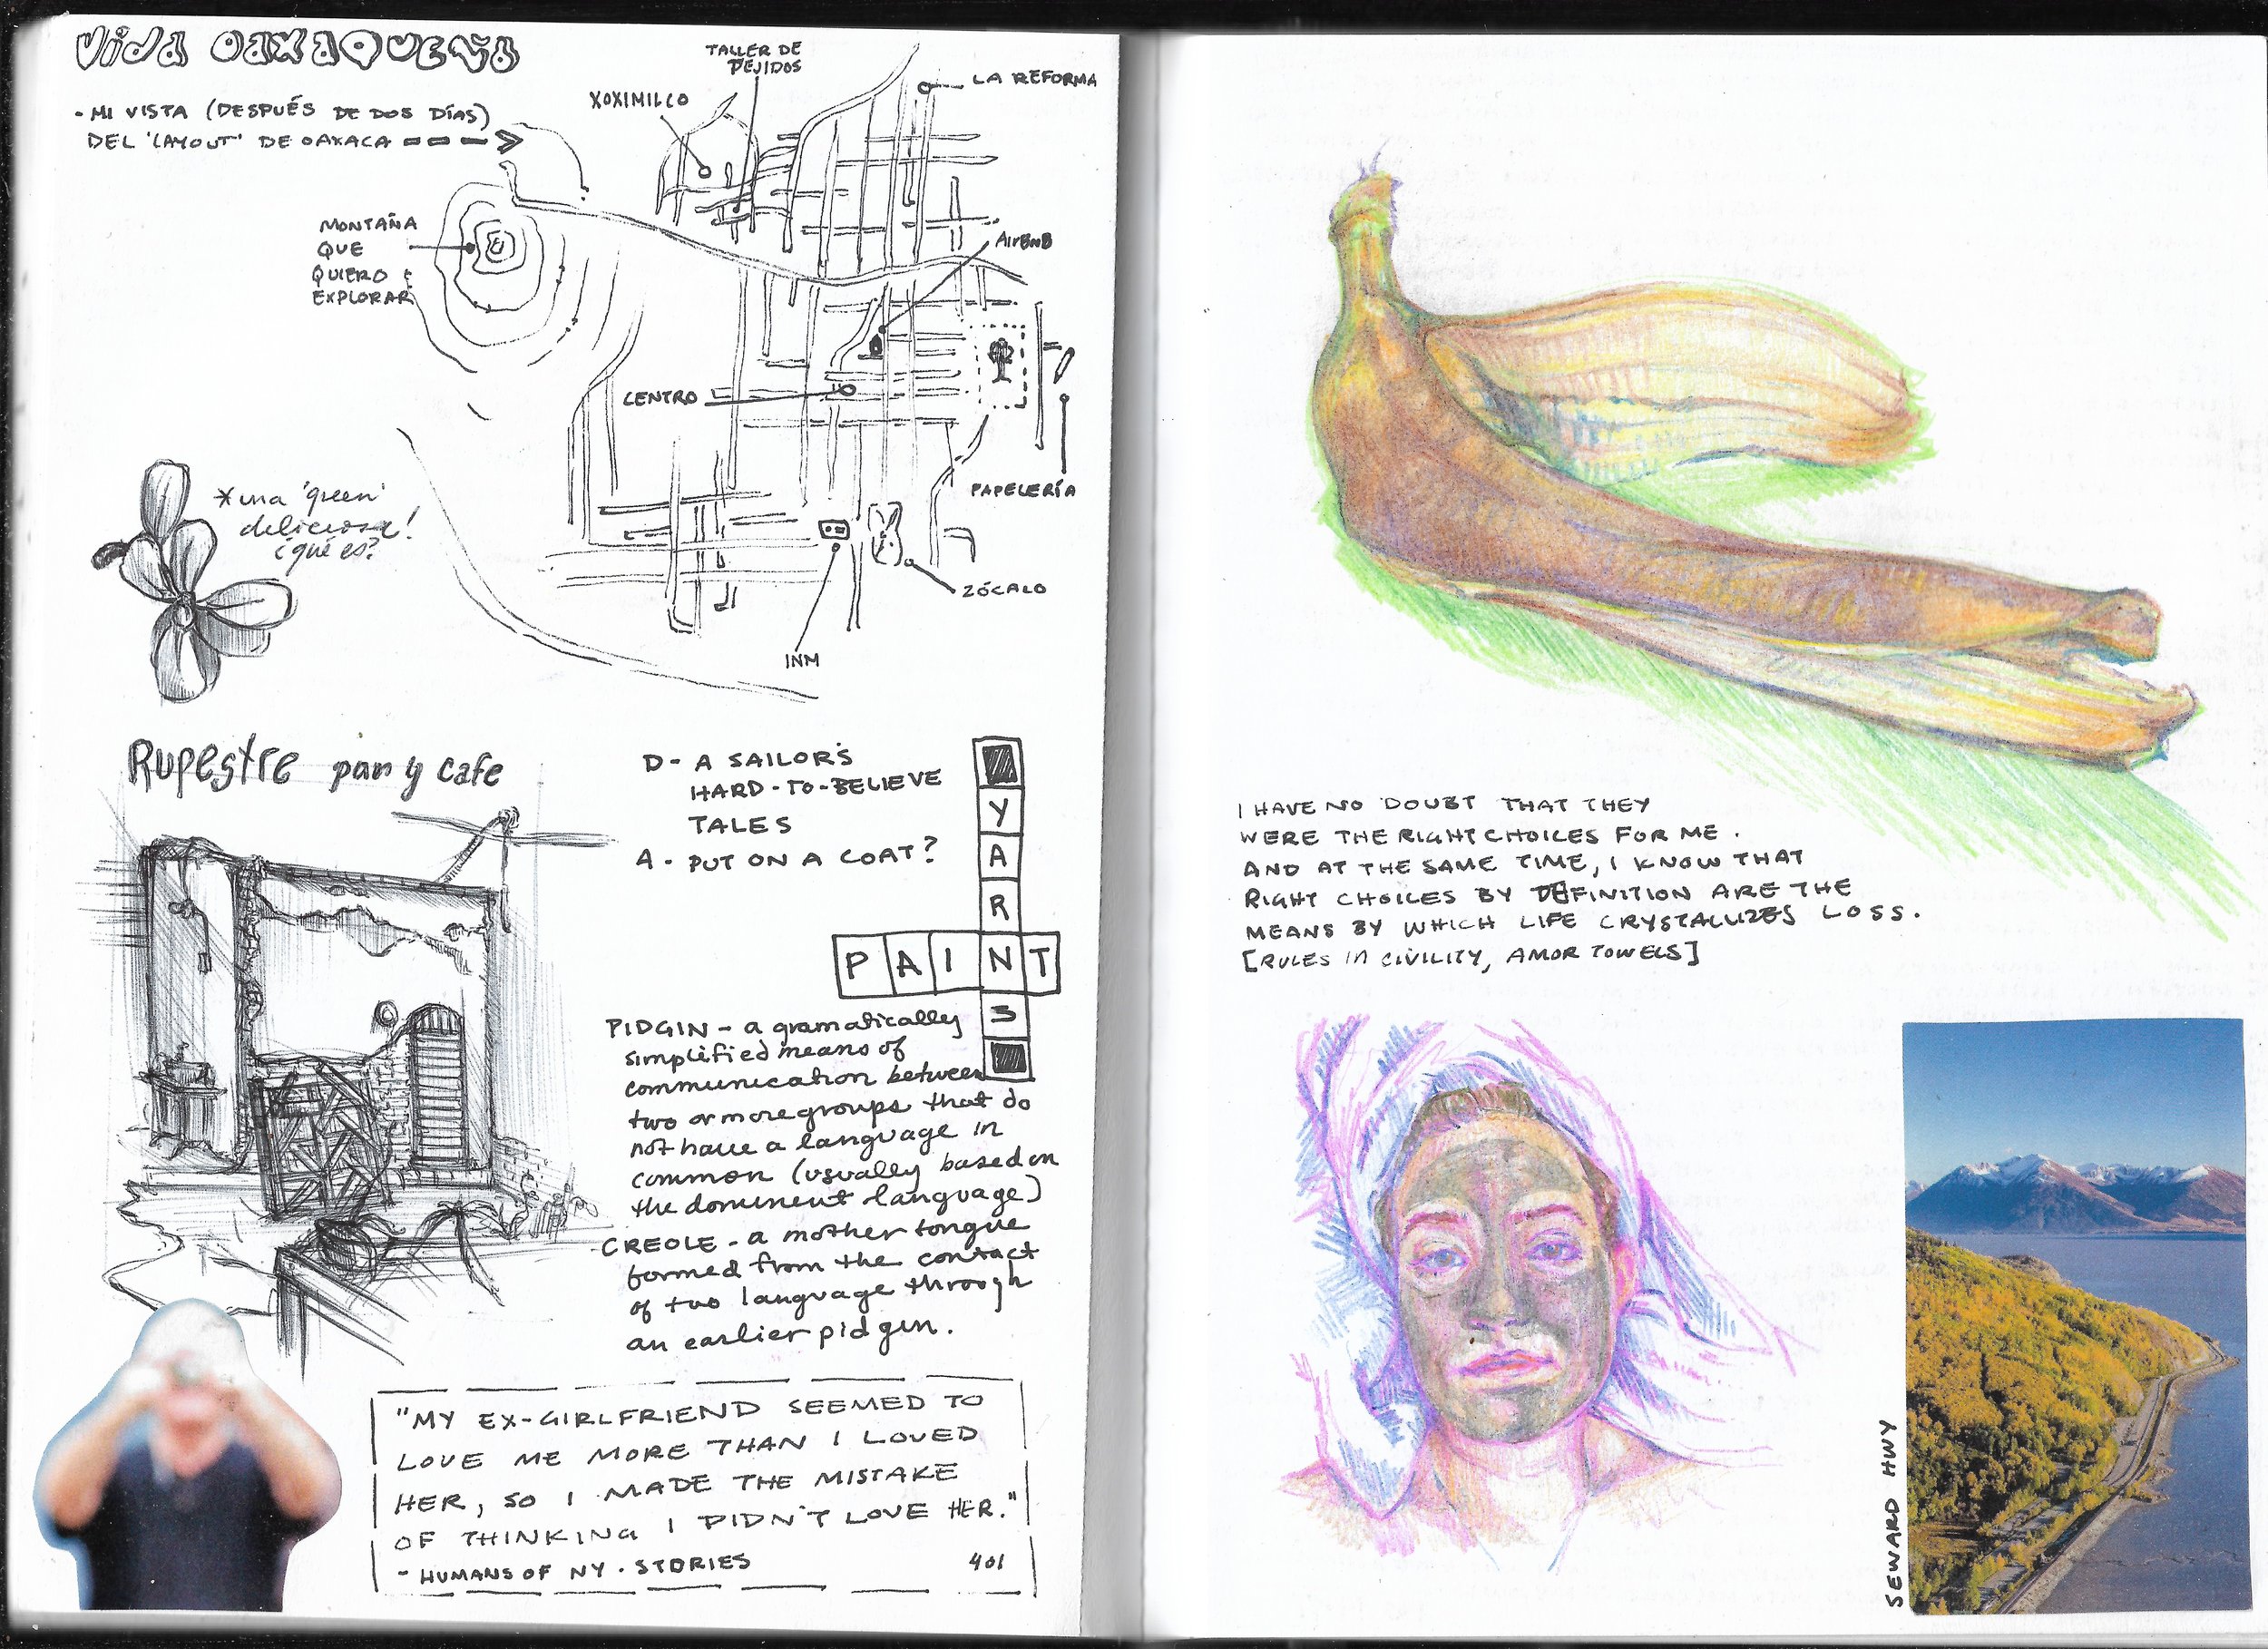 Vida OAXAQUEÑA
- MI VISTA (DESPUÉS DE DOS DÍAS)
DEL 'LAYOUT' DE OAXACA
TALLER DE
TEJIDOS
XOXIMILCO
LA REFORMA
MONTAÑA
QUE
QUIERO
EXPLORAR
AIRBNB
CENTRO
PAPELERÍA
ZÓCALO
INM
*una 'green'
deliciosa!
¿qué es?
Rupestre pan y cafe
D- A SAILOR'S
HARD-TO-BELIEVE
TALES
A- PUT ON A COAT?
Y
A
R
PAINT
S
PIDGIN - a gramatically
simplified means of
communication between
two or more groups that do
not have a language in
common (usually based on
the dominent language)
CREOLE - a mother tongue
formed from the contact
of two language through
an earlier pidgin.
"MY EX-GIRLFRIEND SEEMED TO
LOVE ME MORE THAN I LOVED
HER, SO I MADE THE MISTAKE
OF THINKING I DIDN'T LOVE HER."
- HUMANS OF NY. STORIES 401
I HAVE NO DOUBT THAT THEY
WERE THE RIGHT CHOICES FOR ME.
AND AT THE SAME TIME, I KNOW THAT
RIGHT CHOICES BY DEFINITION ARE THE
MEANS BY WHICH LIFE CRYSTALLIZES LOSS.
[RULES IN CIVILITY, AMOR TOWELS]
SEWARD HWY